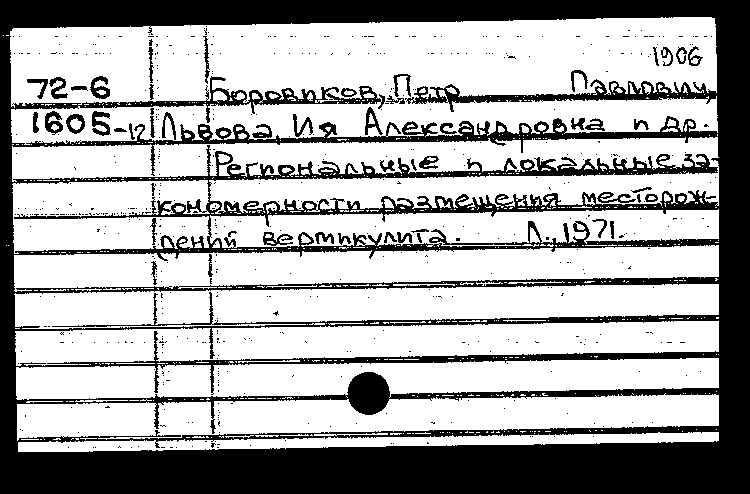 1906
72-6 Боровиков, Петр Павлович,
1605-12 Львова, Ия Александровна и др.
Региональные и локальные за-
кономерности размещения месторож-
дений вермикулита. Л., 1971.